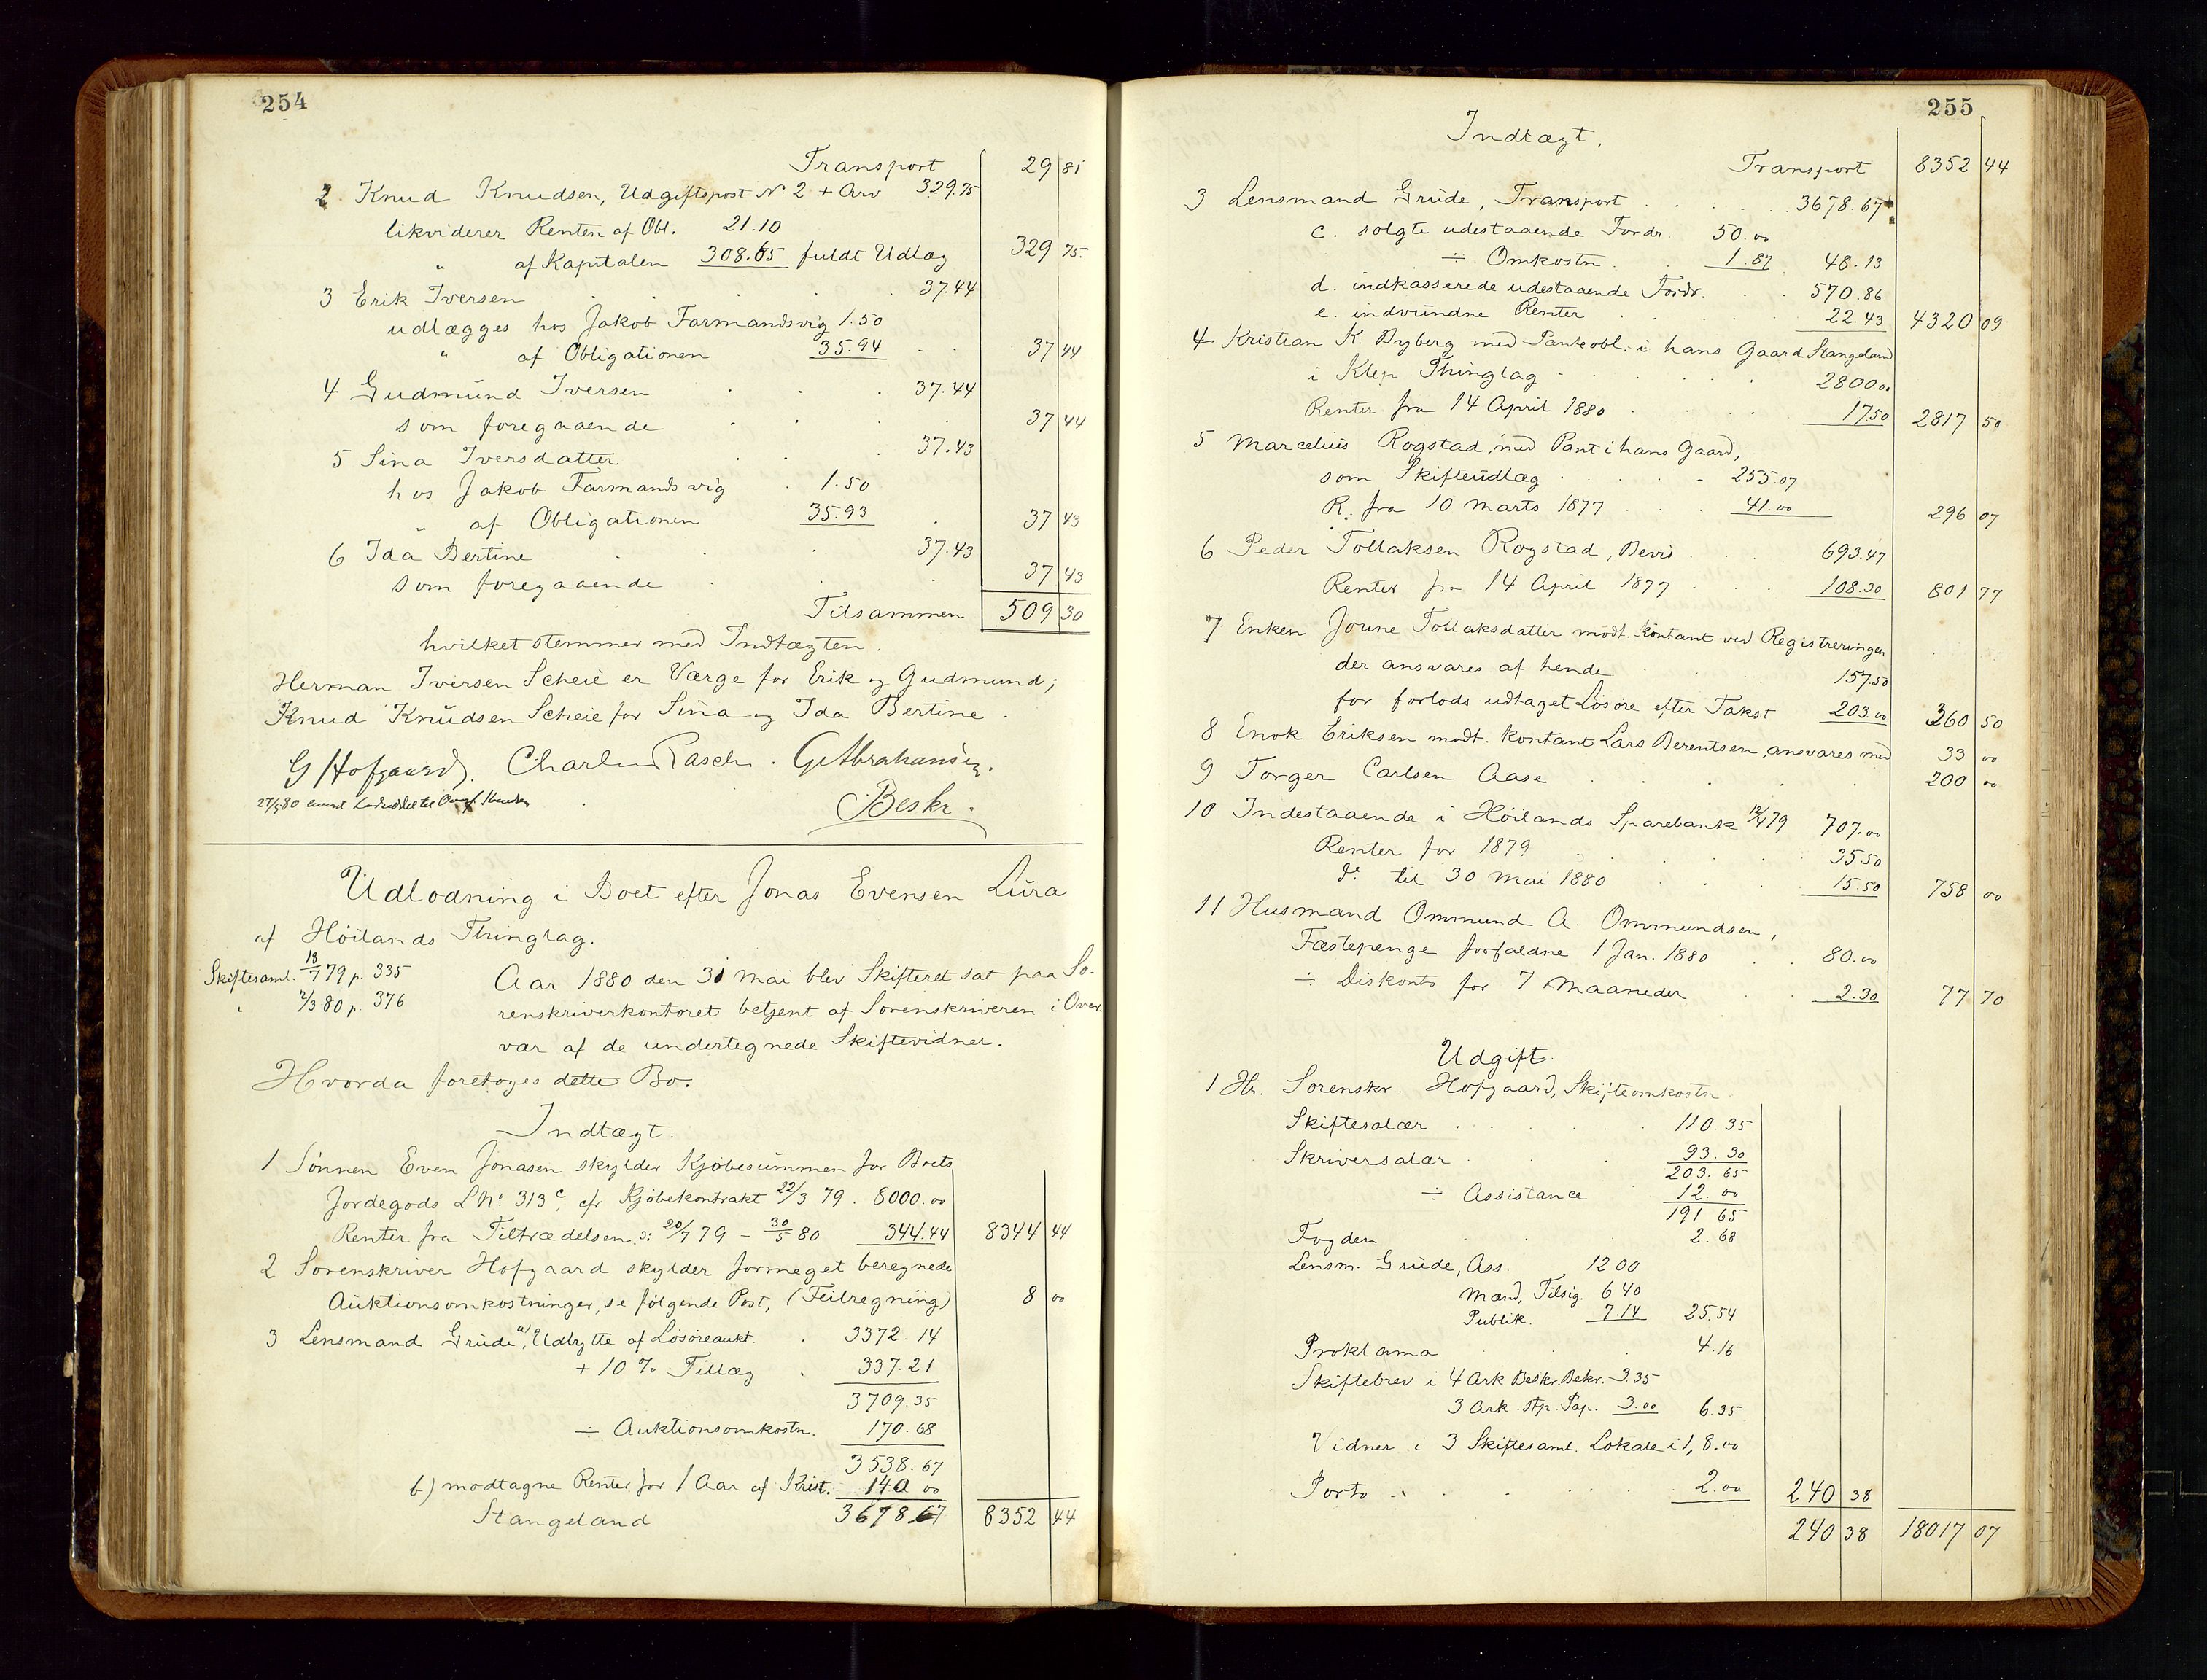 254
Transport 29 81
2 Knud Knudsen, Udgiftspost No 2 + Arv 329.75
likviderer Renten af Obl. 21.10
" af Kapitalen 308.65 fuldt Udlæg 329 75.
3 Erik Iversen 37.44
udlægges hos Jakob Farmandsvig 1.50
" af Obligationen 35.94 37 44
4 Gudmund Iversen 37.44
som foregaaende 37 44
5 Sina Iversdatter 37.43
hos Jakob Farmandsvig 1.50
" af Obligationen 35.93 37 43
6 Ida Bertine 37.43
som foregaaende 37 43
Tilsammen 509 30
hvilket stemmer med Indtægten.
Herman Iversen Scheie er Værge for Erik og Gudmund;
Knud Knudsen Scheie for Sina og Ida Bertine.
G Hofgaard. Charles Rasch. G. Abrahamsen.
27/5 80
Beskr.
Udlodning i Boet efter Jonas Evensen Lura
af Höilands Thinglag.
Skiftesaml. 18/7 79 p. 335
" 2/3 80 p. 376
Aar 1880 den 31 Mai blev Skifteret sat paa So-
renskriverkontoret betjent af Sorenskriveren i Over-
vær af de undertegnede Skiftevidner.
Hvorda foretoges dette Bo.
Indtægt.
1 Sönnen Even Jonasen skylder Kjöbesummen for Boets
Jordegods L.No. 313c, cfr Kjöbekontrakt 22/3 79. 8000.00
Renter fra Tiltrædelsen ɔ: 20/7 79 - 30/5 80 344.44 8344 44
2 Sorenskriver Hofgaard skylder formeget beregnede
Auktionsomkostninger, se fölgende Post, (Feilregning) 8 00
3 Lensmand Grude, a) Udbytte af Lösöreaukt. 3372.14
+ 10 % Tillæg 337.21
3709.35
÷ Auktionsomkostn. 170.68
3538.67
b) modtagne Renter for 1 Aar af Krist. 140 00
Stangeland 3678.67 8352 44
255
Indtægt.
Transport 8352 44
3 Lensmand Grude, Transport 3678.67
c. solgte udestaaende Fordr. 50.00
÷ Omkostn. 1.87 48.13
d. indkasserede udestaaende Fordr. 570.86
e. indvundne Renter 22.43 4320 09
4 Kristian K. Byberg med Panteobl. i hans Gaard Stangeland
i Klep Thinglag 2800.00
Renter fra 14 April 1880 17.50 2817 50
5 Marcelius Rogstad, med Pant i hans Gaard,
som Skifteudlæg 255.07
R. fra 10 Marts 1877 41.00 296 07
6 Peder Tollaksen Rogstad, Bevis 693.47
Renter fra 14 April 1877 108.30 801 77
7 Enken Jorine Tollaksdatter modt. kontant ved Registreringen
der ansvares af hende 157.50
for forlods udtaget Lösöre efter Takst 203.00 360 50
8 Enok Eriksen modt. kontant Lars Berentsen, ansvares med 33 00
9 Torger Carlsen Aase 200 00
10 Indestaaende i Höilands Sparebank 12/4 79 707.00
Renter for 1879 35.50
do til 30 Mai 1880 15.50 758 00
11 Husmand Ommund A. Ommundsen,
Fæstepenge forfaldne 1 Jan. 1880 80.00
÷ Diskonto for 7 Maaneder 2.30 77 70
Udgift.
1 Hr. Sorenskr. Hofgaard, Skifteomkostn
Skiftesalær 110.35
Skriversalær 93.30
203.65
÷ Assistance 12.00
191 65
Fogden 2.68
Lensm. Grude, Ass. 12 00
Mænd, Tilsig. 6 40
Publik. 7.14 25.54
Proklama 4.16
Skiftebrev i 4 Ark Beskr. Bekr. 3.35
3 Ark. stp. Pap. 3.00 6.35
Vidner i 3 Skiftesaml. Lokale i 1, 8.00
Porto 2.00 240 38
240 38 18017 07